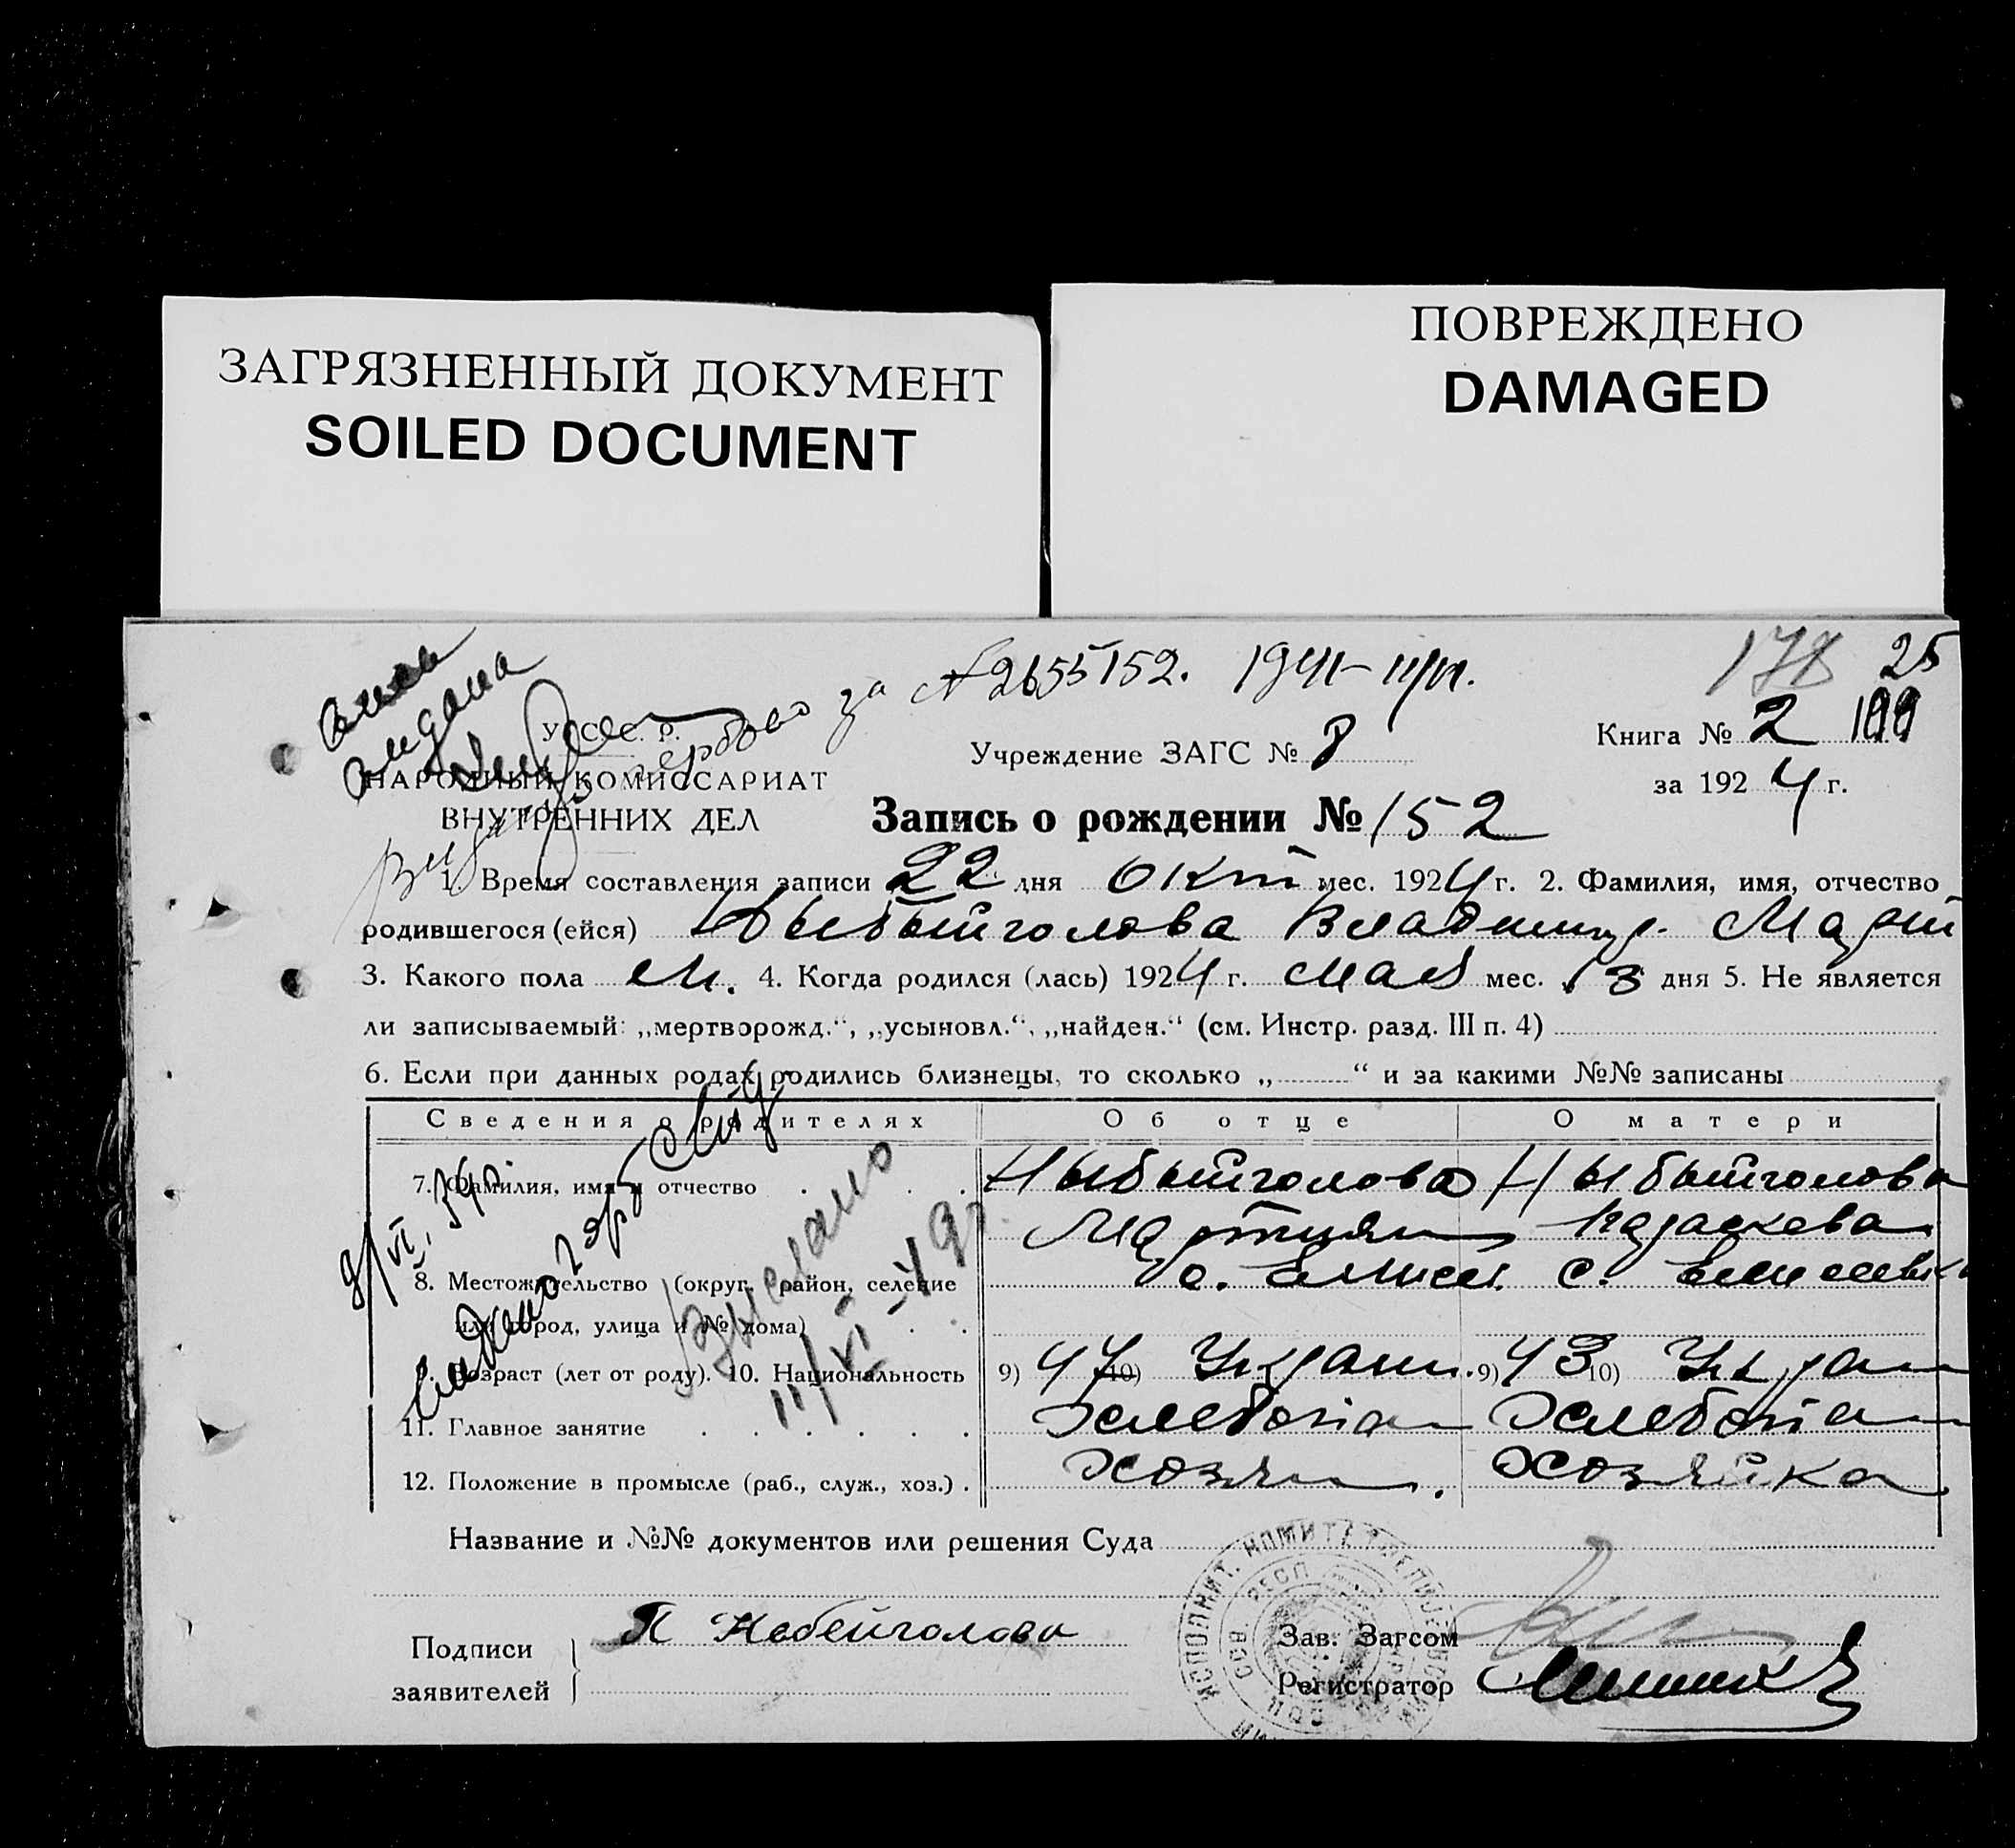 ЗАГРЯЗНЕННЫЙ ДОКУМЕНТ
SOILED DOCUMENT
ПОВРЕЖДЕНО
DAMAGED
за №2655152. 1941-
178 25
У. С. С. Р.
НАРОДНЫЙ КОМИССАРИАТ
ВНУТРЕННИХ ДЕЛ
Учреждение ЗАГС № 8
Книга № 2 199
за 1924 г.
Запись о рождении № 152
1. Время составления записи 22 дня окт мес. 1924 г. 2. Фамилия, имя, отчество
родившегося (ейся) Ныбытголова Владимир Март
3. Какого пола м. 4. Когда родился (лась) 1924 г. мая мес. 13 дня 5. Не является
ли записываемый: „мертворожд.“, „усыновл.“, „найден.“ (см. Инстр. разд. III п. 4)
6. Если при данных родах родились близнецы, то сколько „ “ и за какими №№ записаны
Сведения о родителях Об отце О матери
7. Фамилия, имя и отчество Ныбытголова Ныбытголова
Мартиян Параскева
8. Местожительство (округ, район, селение с. с.
или город, улица и № дома)
9. Возраст (лет от роду). 10. Национальность 9) 47 10) Украин. 9) 43 10) Украин
11. Главное занятие Хлебопаш Хлебопаш
12. Положение в промысле (раб., служ., хоз.) Хозяин. Хозяйка
Название и №№ документов или решения Суда
Подписи
заявителей
П Небейголова
Зав. Загсом
Регистратор